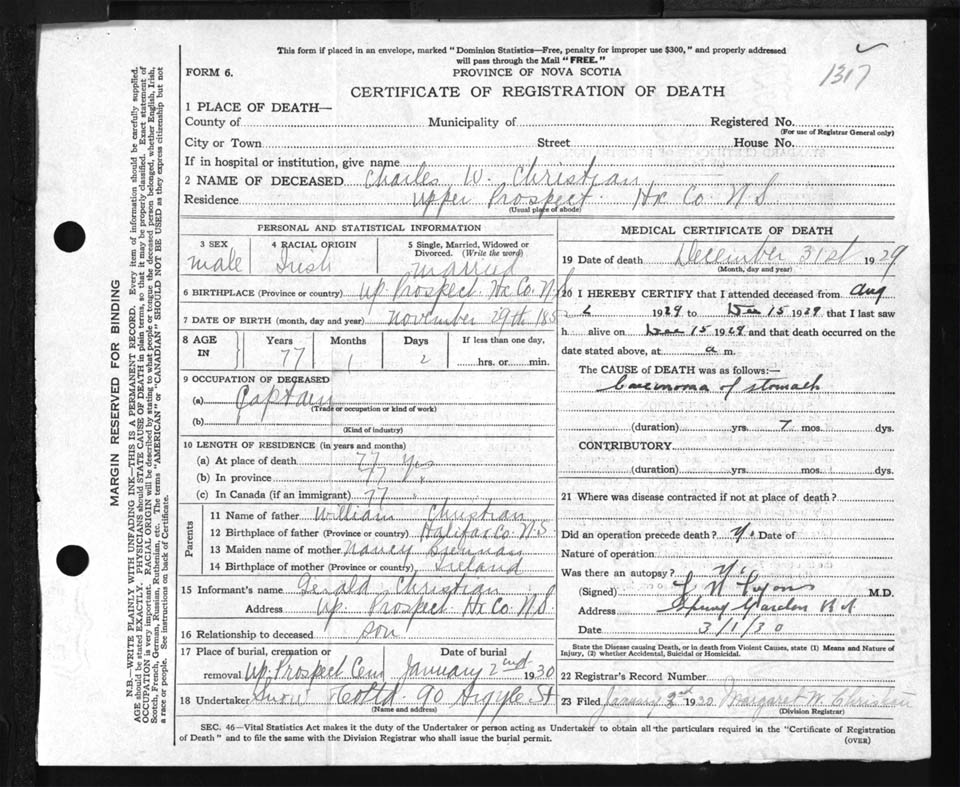 This form if placed in an envelope, marked "Dominion Statistics—Free, penalty for improper use $300," and properly addressed
will pass through the Mail "FREE."
1317
FORM 6.
PROVINCE OF NOVA SCOTIA
CERTIFICATE OF REGISTRATION OF DEATH
1 PLACE OF DEATH—
County of Municipality of Registered No.
(For use of Registrar General only)
City or Town Street House No.
If in hospital or institution, give name
2 NAME OF DECEASED Charles W. Christian
Residence Upper Prospect Hx Co. N S
(Usual place of abode)
PERSONAL AND STATISTICAL INFORMATION
3 SEX 4 RACIAL ORIGIN 5 Single, Married, Widowed or
Divorced. (Write the word)
male Irish married
6 BIRTHPLACE (Province or country) Up. Prospect Hx Co. N S
7 DATE OF BIRTH (month, day and year) November 29th 185
8 AGE IN Years Months Days If less than one day,
77 1 2 hrs. or min.
9 OCCUPATION OF DECEASED
(a) Captain
(Trade or occupation or kind of work)
(b)
(Kind of industry)
10 LENGTH OF RESIDENCE (in years and months)
(a) At place of death 77 Yrs
(b) In province "
(c) In Canada (if an immigrant) 77 "
Parents
11 Name of father William Christian
12 Birthplace of father (Province or country) Halifax Co. N.S.
13 Maiden name of mother Nancy
14 Birthplace of mother (Province or country) Ireland
15 Informant's name Gerald Christian
Address Up. Prospect Hx Co. N.S.
16 Relationship to deceased son
17 Place of burial, cremation or Date of burial
removal Up. Prospect Cem January 2nd 1930
18 Undertaker Snow & Co Ltd. 90 Argyle St
(Name and address)
MEDICAL CERTIFICATE OF DEATH
19 Date of death December 31st 1929
(Month, day and year)
20 I HEREBY CERTIFY that I attended deceased from Aug
1929 to Dec 15 1929 that I last saw
h alive on Dec 15 1929 and that death occurred on the
date stated above, at a m.
The CAUSE of DEATH was as follows:—
Carcinoma of stomach
(duration) yrs. 7 mos. dys.
CONTRIBUTORY
(duration) yrs. mos. dys.
21 Where was disease contracted if not at place of death?
Did an operation precede death? No Date of
Nature of operation
Was there an autopsy? No
(Signed) M.D.
Address Spring Garden Rd
Date 3/1/30
State the Disease causing Death, or in death from Violent Causes, state (1) Means and Nature of
Injury, (2) whether Accidental, Suicidal or Homicidal.
22 Registrar's Record Number
23 Filed January 1930 Margaret W. Christian
(Division Registrar)
SEC. 46—Vital Statistics Act makes it the duty of the Undertaker or person acting as Undertaker to obtain all the particulars required in the "Certificate of Registration
of Death" and to file the same with the Division Registrar who shall issue the burial permit.
(OVER)
MARGIN RESERVED FOR BINDING
N.B.—WRITE PLAINLY WITH UNFADING INK—THIS IS A PERMANENT RECORD. Every item of information should be carefully supplied.
AGE should be stated EXACTLY. PHYSICIANS should STATE CAUSE OF DEATH in plain terms, so that it may be properly classified. Exact statement of
OCCUPATION is very important. RACIAL ORIGIN will be described by stating to what people or tongue the deceased person belonged, whether English, Irish,
Scotch, French, German, Russian, Ruthenian, etc. The terms "AMERICAN" or "CANADIAN" SHOULD NOT BE USED as they express citizenship but not
a race or people. See instructions on back of Certificate.